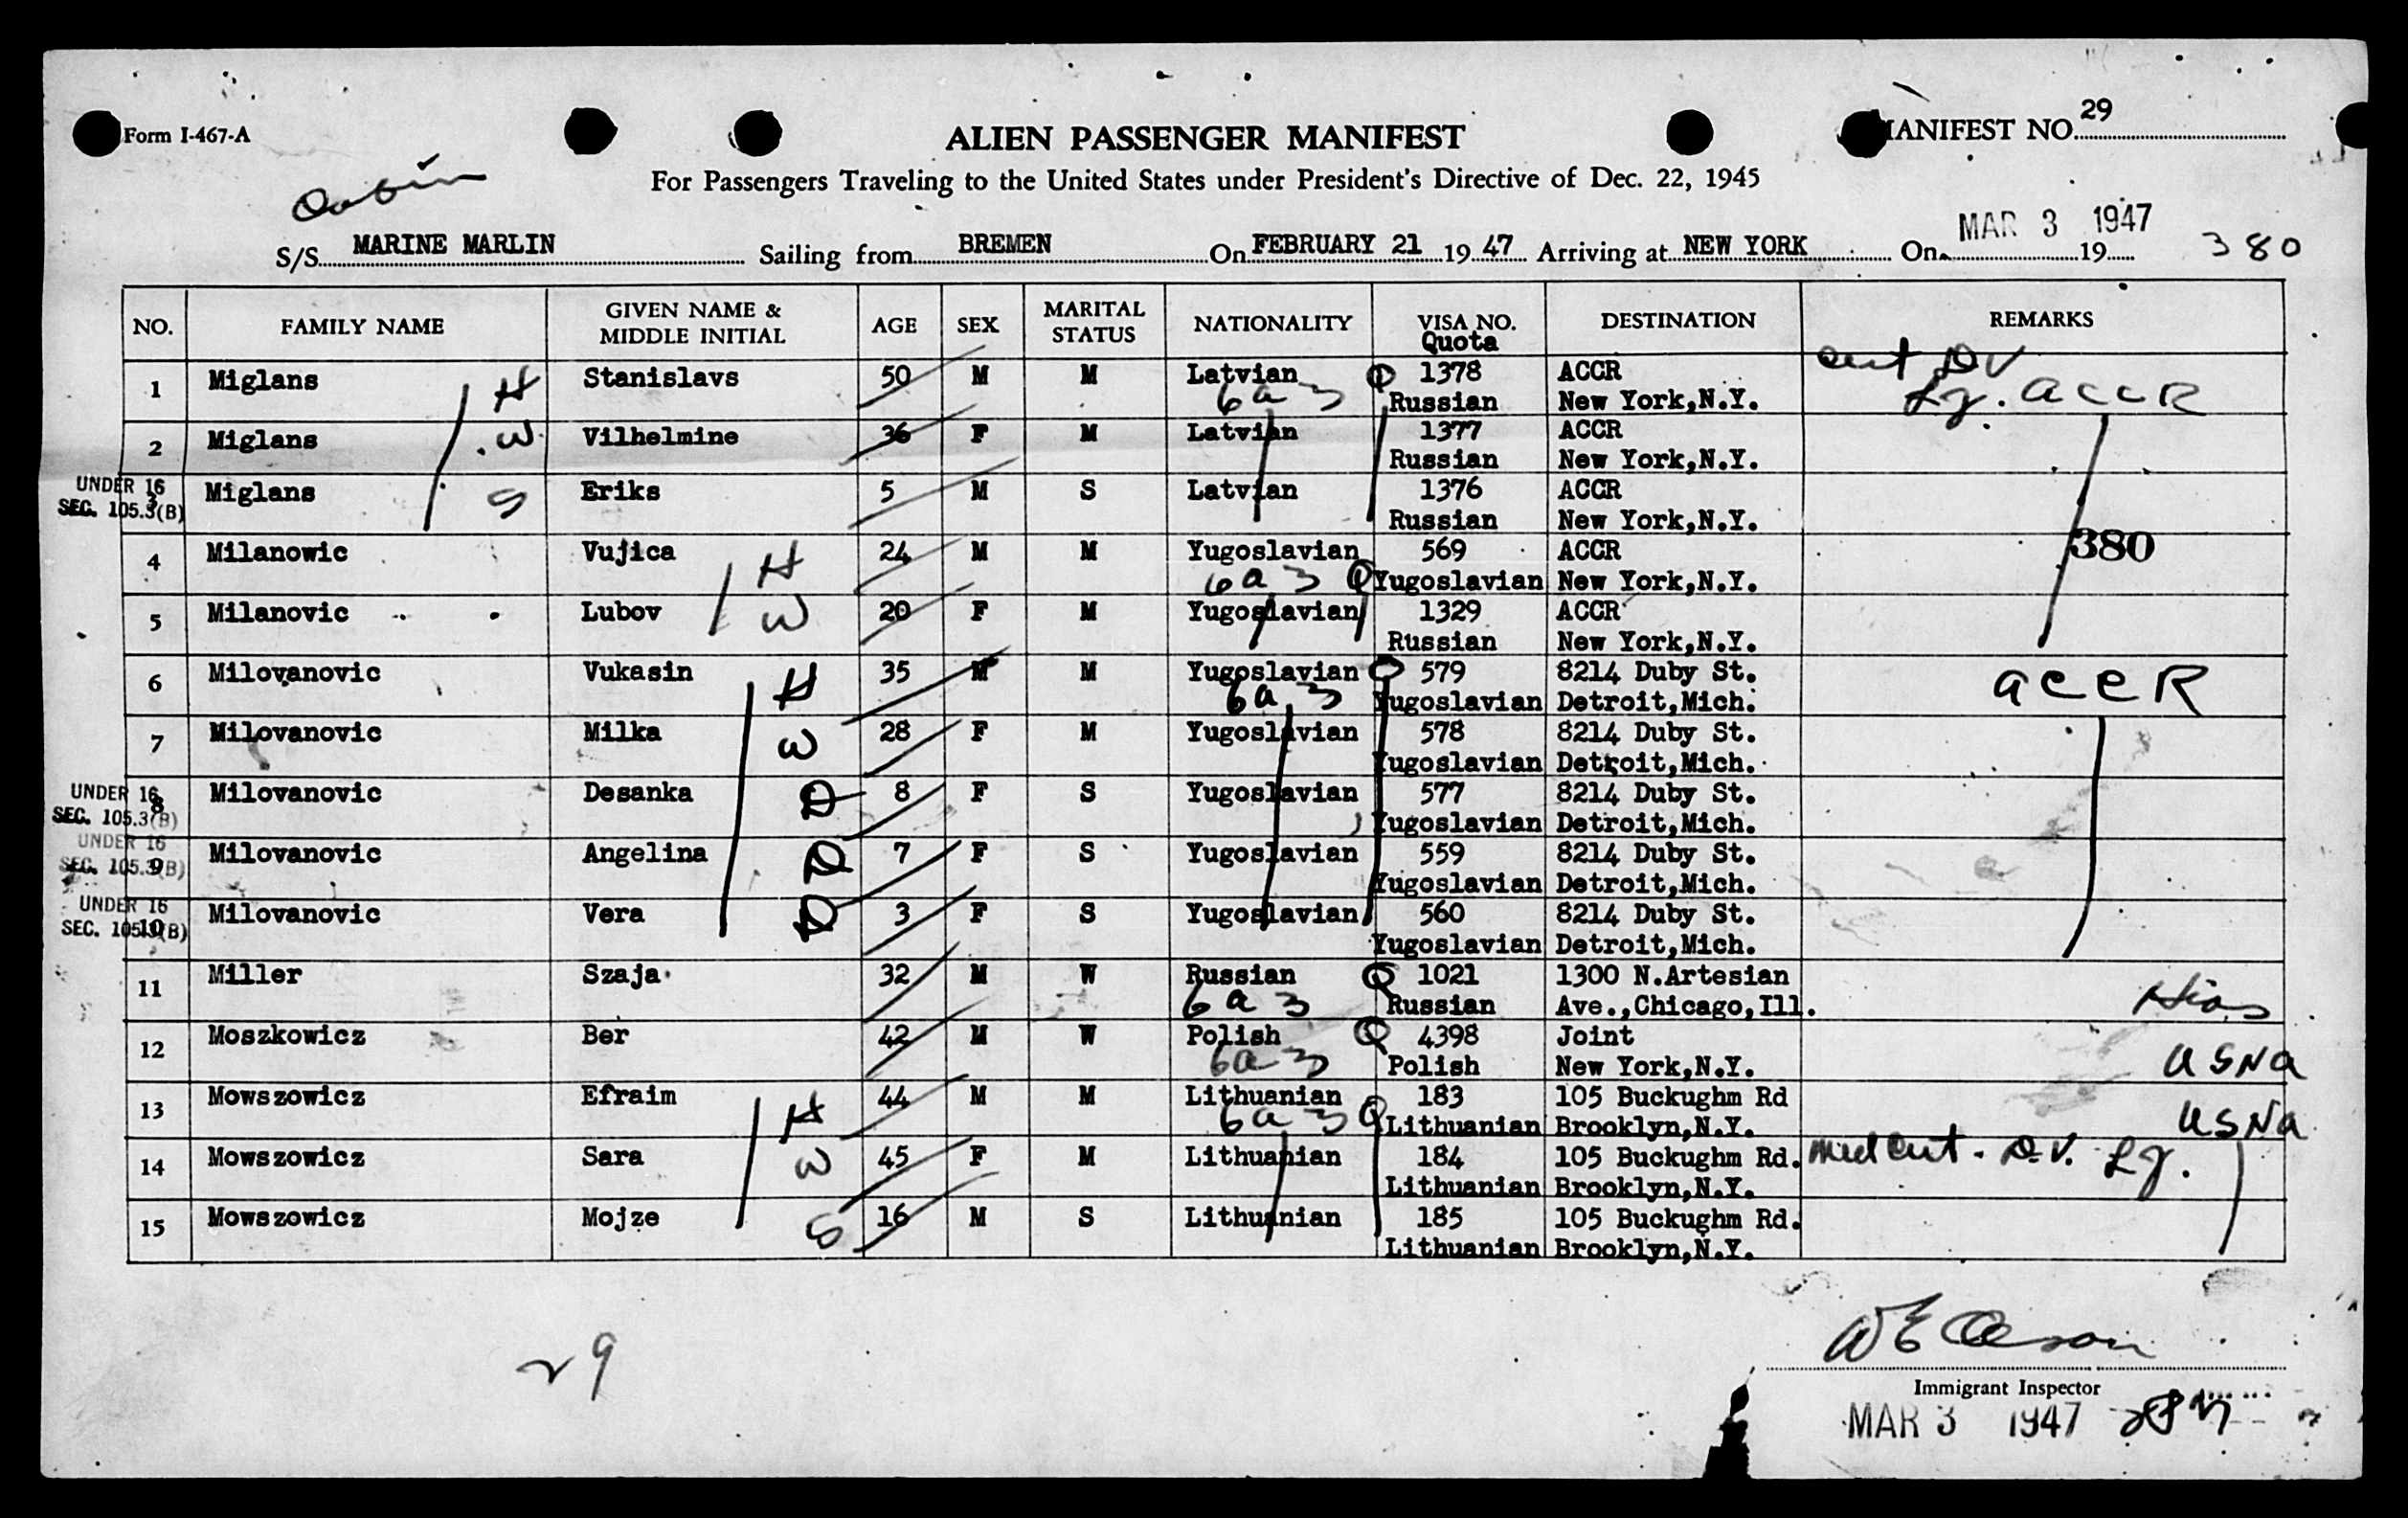 Form I-467-A
ALIEN PASSENGER MANIFEST
MANIFEST NO. 29
For Passengers Traveling to the United States under President's Directive of Dec. 22, 1945
Cabin
S/S MARINE MARLIN Sailing from BREMEN On FEBRUARY 21 19 47 Arriving at NEW YORK On MAR 3 1947 19 380
NO. FAMILY NAME GIVEN NAME & MIDDLE INITIAL AGE SEX MARITAL STATUS NATIONALITY VISA NO. Quota DESTINATION REMARKS
1 Miglans H Stanislavs 50 M M Latvian Q 1378 ACCR cert DV
6a3 Russian New York,N.Y. ACCR
2 Miglans W Vilhelmine 36 F M Latvian 1377 ACCR
Russian New York,N.Y.
UNDER 16
SEC. 105.3(B)
3 Miglans S Eriks 5 M S Latvian 1376 ACCR
Russian New York,N.Y.
4 Milanowic Vujica H 24 M M Yugoslavian 569 ACCR 380
6a3 Q Yugoslavian New York,N.Y.
5 Milanovic Lubov W 20 F M Yugoslavian 1329 ACCR
Russian New York,N.Y.
6 Milovanovic Vukasin H 35 M M Yugoslavian Q 579 8214 Duby St. ACCR
6a3 Yugoslavian Detroit,Mich.
7 Milovanovic Milka W 28 F M Yugoslavian 578 8214 Duby St.
Yugoslavian Detroit,Mich.
UNDER 16
SEC. 105.3(B)
8 Milovanovic Desanka D 8 F S Yugoslavian 577 8214 Duby St.
Yugoslavian Detroit,Mich.
UNDER 16
SEC. 105.3(B)
9 Milovanovic Angelina D 7 F S Yugoslavian 559 8214 Duby St.
Yugoslavian Detroit,Mich.
UNDER 16
SEC. 105.3(B)
10 Milovanovic Vera D 3 F S Yugoslavian 560 8214 Duby St.
Yugoslavian Detroit,Mich.
11 Miller Szaja 32 M W Russian Q 1021 1300 N.Artesian Hias
6a3 Russian Ave.,Chicago,Ill.
12 Moszkowicz Ber 42 M W Polish Q 4398 Joint USNA
6a3 Polish New York,N.Y.
13 Mowszowicz Efraim H 44 M M Lithuanian 183 105 Buckughm Rd USNA
6a3 Q Lithuanian Brooklyn,N.Y.
14 Mowszowicz Sara W 45 F M Lithuanian 184 105 Buckughm Rd. Med Cert. D.V.
Lithuanian Brooklyn,N.Y.
15 Mowszowicz Mojze S 16 M S Lithuanian 185 105 Buckughm Rd.
Lithuanian Brooklyn,N.Y.
29
Immigrant Inspector
MAR 3 1947